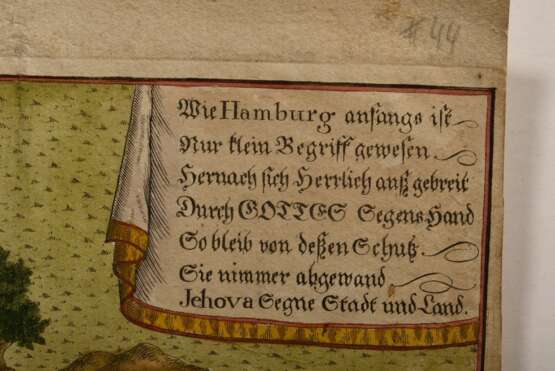 # 44
Wie Hamburg anfangs ist
Nur klein Begriff gewesen.
Hernach sich Herrlich auß gebreit
Durch GOTTES Segens Hand
So bleib von deßen Schutz.
Sie nimmer abgewand
Jehova Segne Stadt und Land.